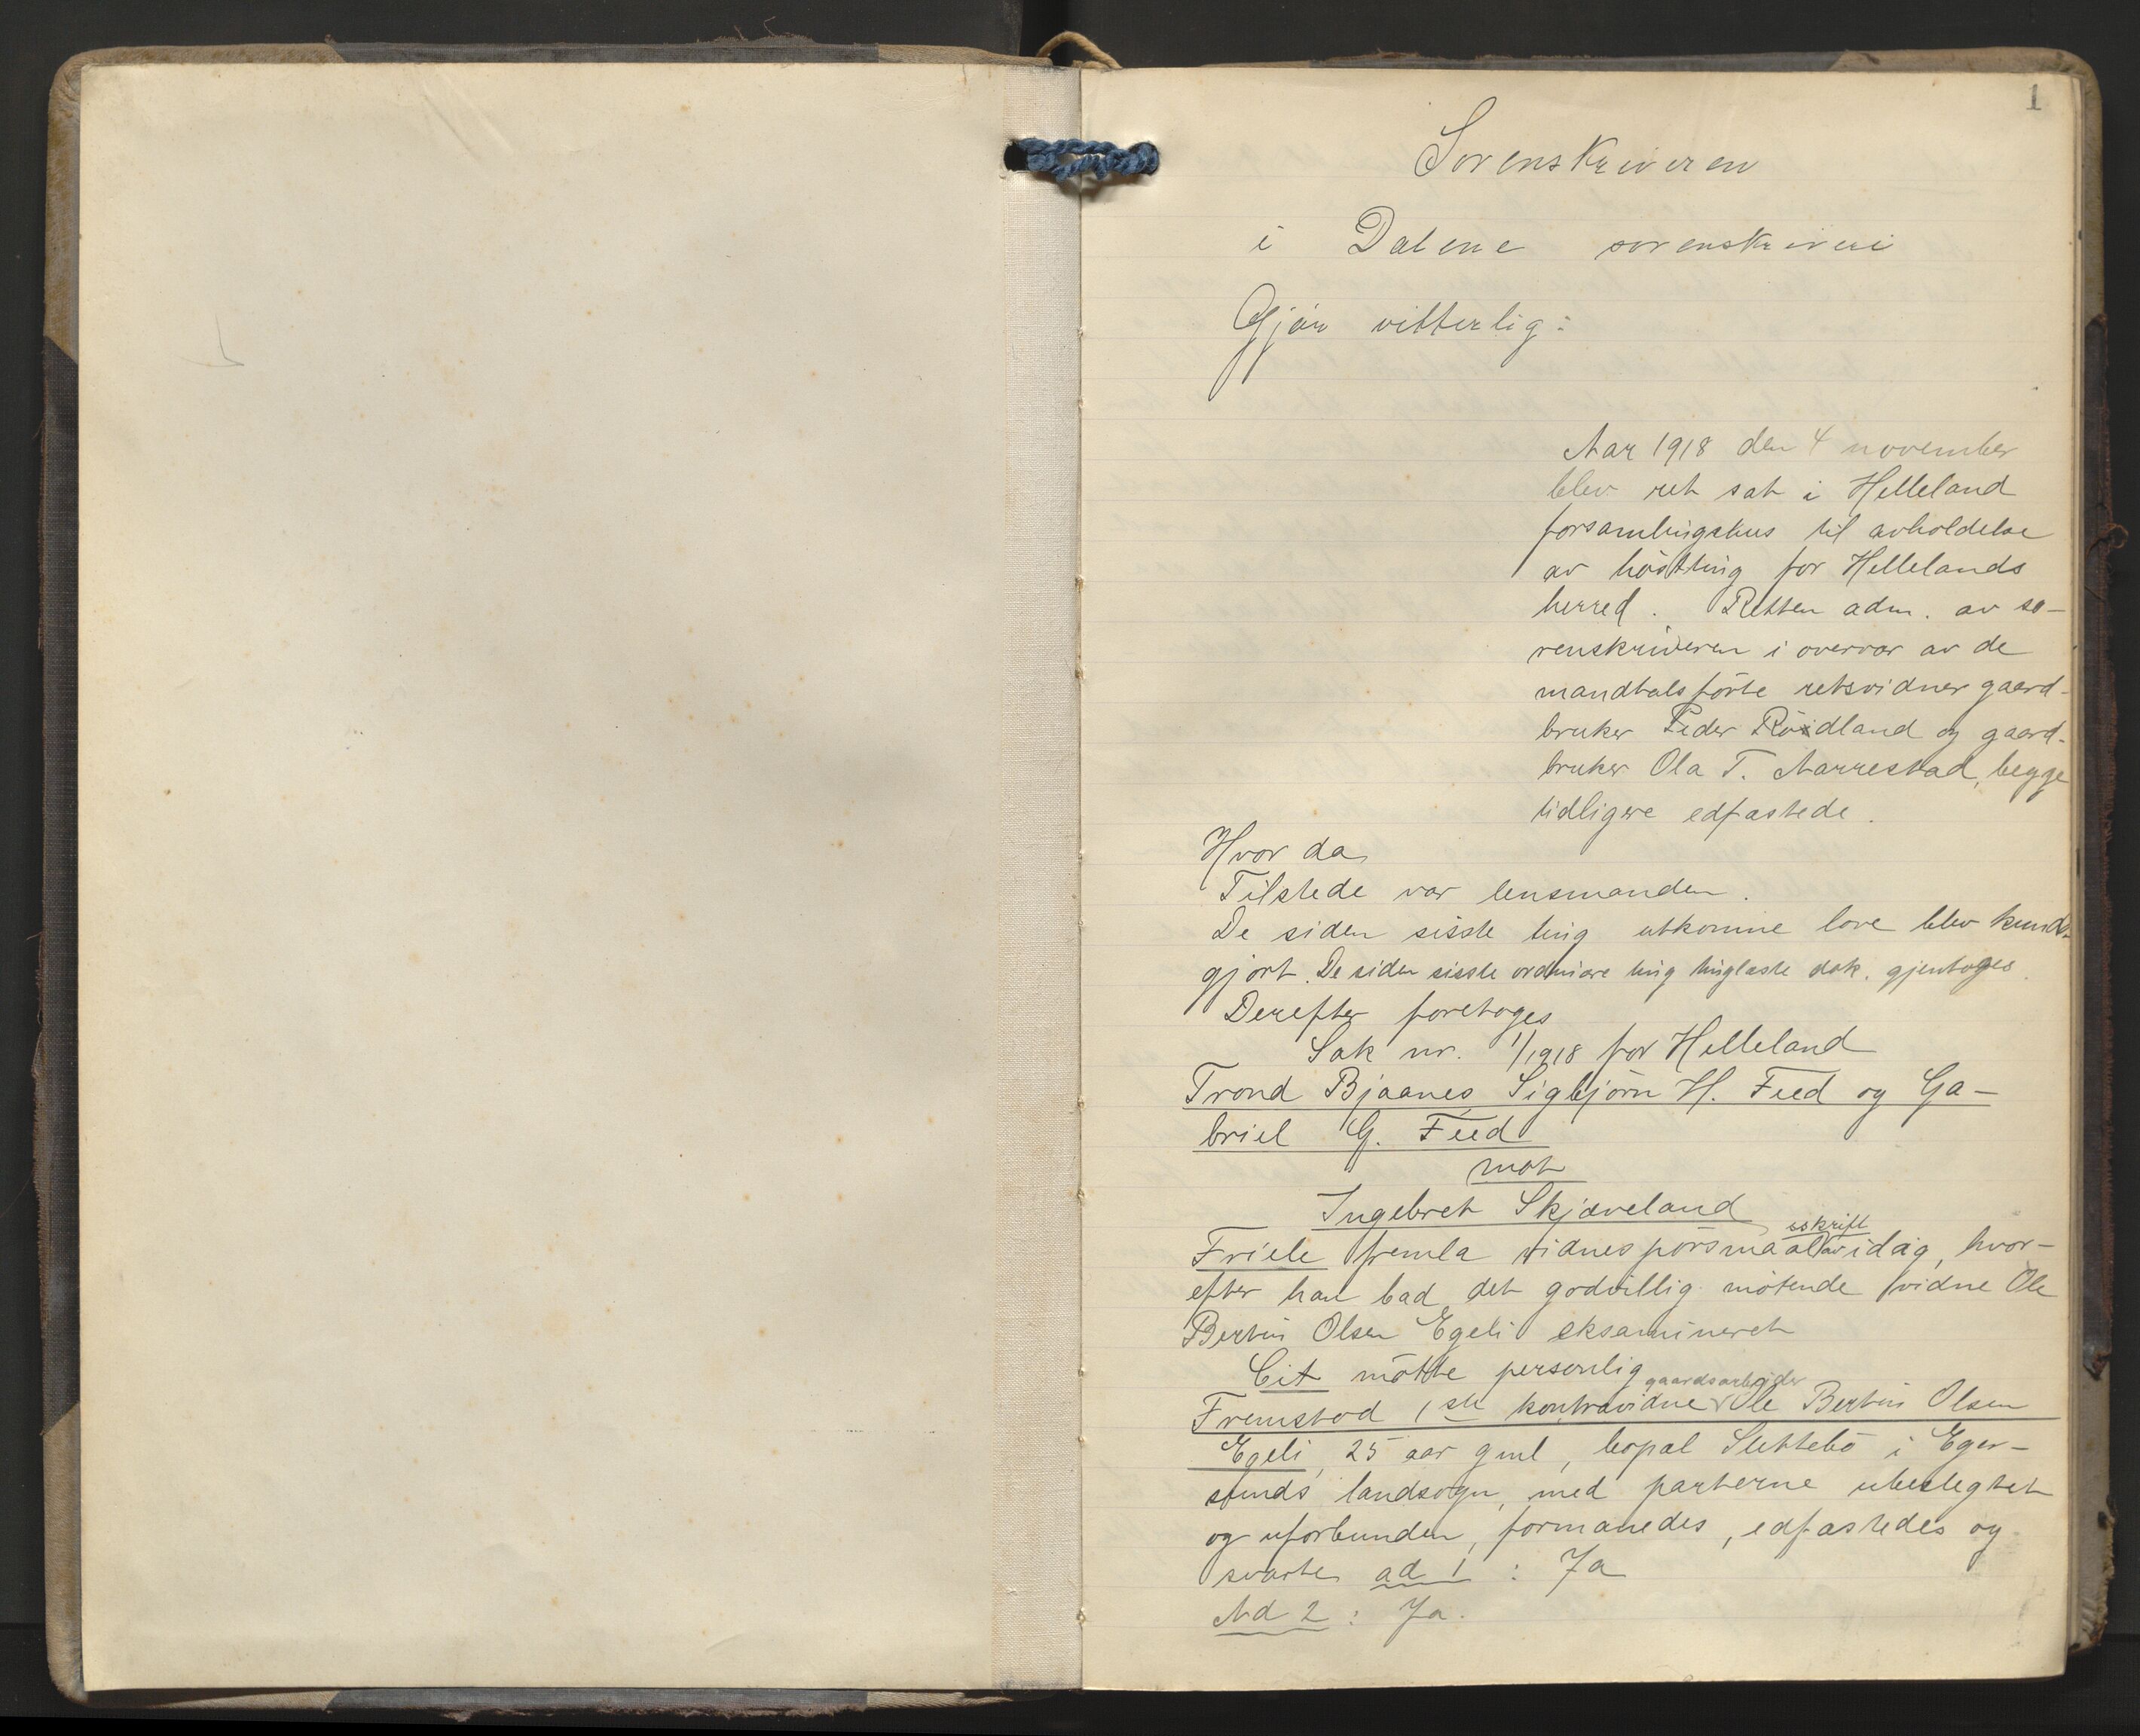 1
Sorenskriveren
i Dalene sorenskriveri
Gjør vitterlig:
Aar 1918 den 4 november
blev ret sat i Helleland
forsamlingshus til avholdelse
av høstting for Hellelands
herred. Retten adm. av so-
renskriveren i overvær av de
mandtalsførte retsvidner gaard-
bruker Peder Rødland og gaard-
bruker Ola T. Aarrestad, begge
tidligere edfæstede.
Hvor da
Tilstede var lensmanden.
De siden sisste ting utkomne love blev kund-
gjort. De siden sisste ordinære ting tinglæste dok. gjentoges.
Derefter foretoges
Sak nr. 1/1918 for Helleland
Trond Bjaanes Sigbjørn H. Feed og Ga-
briel G. Feed
mot
Ingebret Skjæveland
sskrift
Friele fremla vidnespørsmaal av idag, hvor-
efter han bad det godvillig møtende vidne Ole
Bertin Olsen Egeli eksamineret
Cit møtte personlig
gaardsarbeider
Fremstod 1ste kontravidne Ole Bertin Olsen
Egeli, 25 aar gml, bopæl Slettebø i Eger-
sunds landsogn, med parterne ubeslegtet
og uforbunden, formanedes, edfæstedes og
svarte ad 1 : Ja
Ad 2 : Ja.